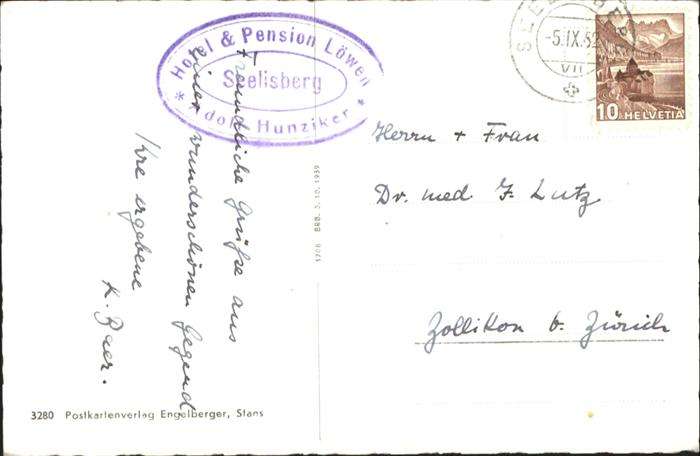 Hotel & Pension Löwen
Seelisberg
* Adolf Hunziker *
SEELISBERG
-5.IX.52
VII
10 HELVETIA
Freundliche Grüße aus
einer wunderschönen Gegend,
Ihre ergebene
K. Baer.
Herrn + Frau
Dr. med F. Lutz
Zollikon b. Zürich
BRB. 3. 10. 1939
3280 Postkartenverlag Engelberger, Stans